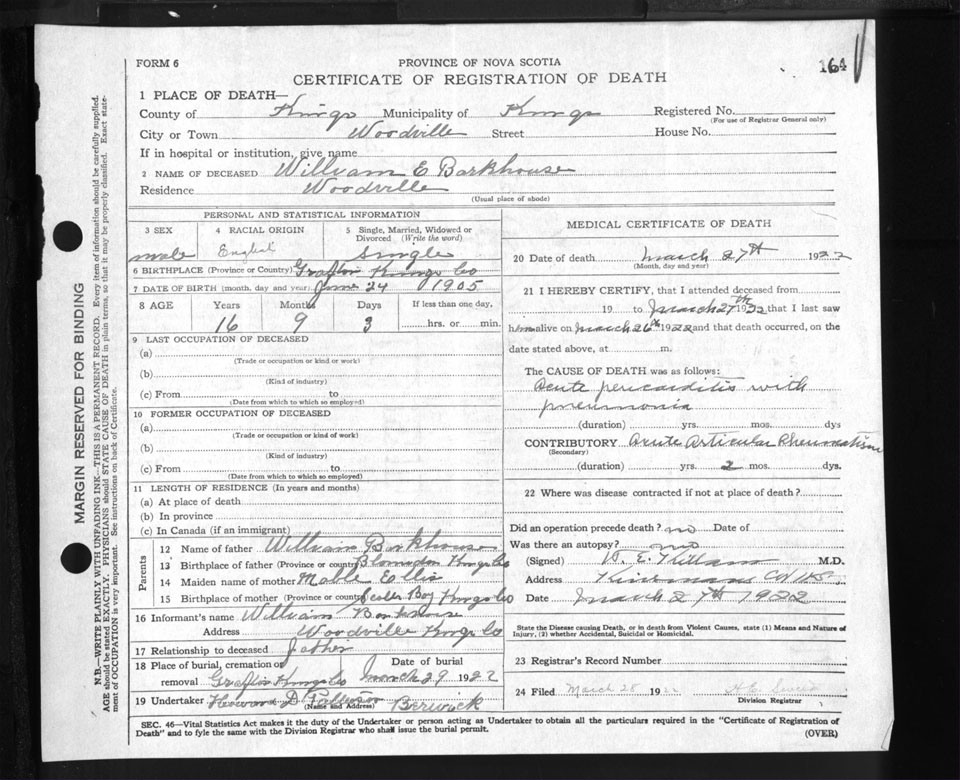 FORM 6
PROVINCE OF NOVA SCOTIA
164
CERTIFICATE OF REGISTRATION OF DEATH
1 PLACE OF DEATH—
County of Kings Municipality of Kings Registered No.
(For use of Registrar General only)
City or Town Woodville Street House No.
If in hospital or institution, give name
2 NAME OF DECEASED William E Barkhouse
Residence Woodville
(Usual place of abode)
MARGIN RESERVED FOR BINDING
N.B.—WRITE PLAINLY WITH UNFADING INK—THIS IS A PERMANENT RECORD. Every item of information should be carefully supplied.
AGE should be stated EXACTLY. PHYSICIANS should STATE CAUSE OF DEATH in plain terms, so that it may be properly classified. Exact state-
ment of OCCUPATION is very important. See instructions on back of Certificate.
PERSONAL AND STATISTICAL INFORMATION
3 SEX 4 RACIAL ORIGIN 5 Single, Married, Widowed or
Divorced (Write the word)
male English Single
6 BIRTHPLACE (Province or Country) Grafton Kings Co
7 DATE OF BIRTH (month, day and year) June 24 1905
8 AGE Years Months Days If less than one day,
16 9 3 hrs. or min.
9 LAST OCCUPATION OF DECEASED
(a)
(Trade or occupation or kind or work)
(b)
(Kind of industry)
(c) From to
(Date from which to which so employed)
10 FORMER OCCUPATION OF DECEASED
(a)
(Trade or occupation or kind of work)
(b)
(Kind of industry)
(c) From to
(Date from which to which so employed)
11 LENGTH OF RESIDENCE (In years and months)
(a) At place of death
(b) In province
(c) In Canada (if an immigrant)
Parents
12 Name of father William Barkhouse
13 Birthplace of father (Province or country) Blomidon Kings Co
14 Maiden name of mother Mable Ellis
15 Birthplace of mother (Province or country) Scotts Bay Kings Co
16 Informant's name William Barkhouse
Address Woodville Kings Co
17 Relationship to deceased father
18 Place of burial, cremation or Date of burial
removal Grafton Kings Co March 29 1922
19 Undertaker Howard D Berwick
(Name and Address)
MEDICAL CERTIFICATE OF DEATH
20 Date of death March 27th 1922
(Month, day and year)
21 I HEREBY CERTIFY, that I attended deceased from
19 to March 27th 1922 that I last saw
him alive on March 26th 1922 and that death occurred, on the
date stated above, at m.
The CAUSE OF DEATH was as follows:
Acute pericarditis with
pneumonia
(duration) yrs. mos. dys
CONTRIBUTORY Acute Articular Rheumatism
(Secondary)
(duration) yrs. 2 mos. dys.
22 Where was disease contracted if not at place of death?
Did an operation precede death? no Date of
Was there an autopsy? no
(Signed) E. Killam M.D.
Address
Date March 27th 1922
State the Disease causing Death, or in death from Violent Causes, state (1) Means and Nature of
Injury, (2) whether Accidental, Suicidal or Homicidal.
23 Registrar's Record Number
24 Filed March 28 1922
Division Registrar
SEC. 46—Vital Statistics Act makes it the duty of the Undertaker or person acting as Undertaker to obtain all the particulars required in the "Certificate of Registration of
Death" and to fyle the same with the Division Registrar who shall issue the burial permit.
(OVER)